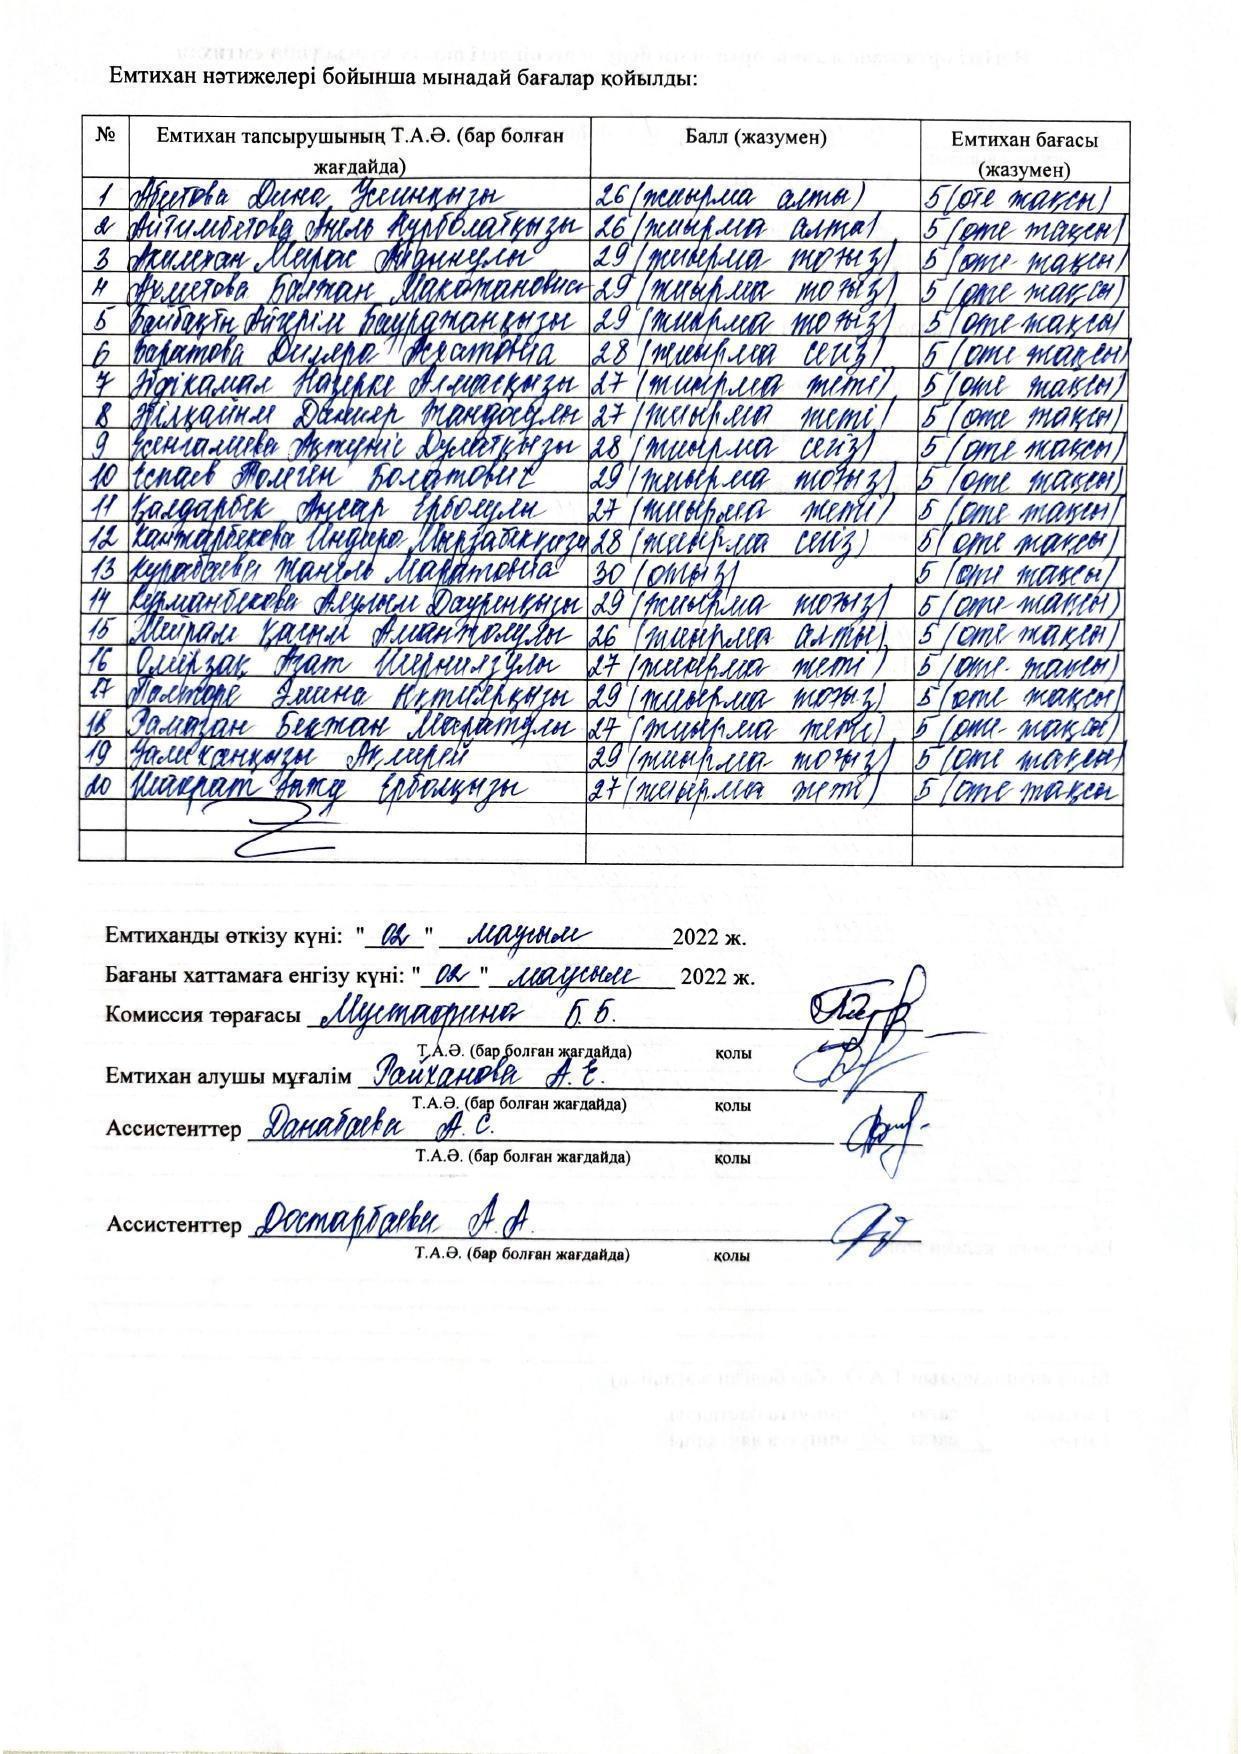 Емтихан нәтижелері бойынша мынадай бағалар қойылды:
№ Емтихан тапсырушының Т.А.Ә. (бар болған жағдайда) Балл (жазумен) Емтихан бағасы (жазумен)
1 Дина 26 (жиырма алты) 5 (өте жақсы)
2 Айтимбетова Анель Нурболатқызы 26 (жиырма алты) 5 (өте жақсы)
3 Мирас 29 (жиырма тоғыз) 5 (өте жақсы)
4 Ахметова Балжан 29 (жиырма тоғыз) 5 (өте жақсы)
5 Байбақты Айгерім Бауржанқызы 29 (жиырма тоғыз) 5 (өте жақсы)
6 Баратова Диляра 28 (жиырма сегіз) 5 (өте жақсы)
7 Әбдікамал Назерке Алмасқызы 27 (жиырма жеті) 5 (өте жақсы)
8 Әділқайым Данияр Жандосұлы 27 (жиырма жеті) 5 (өте жақсы)
9 Есенгалиева Ақтүніс Дулатқызы 28 (жиырма сегіз) 5 (өте жақсы)
10 Еспаев Төлеген Болатович 29 (жиырма тоғыз) 5 (өте жақсы)
11 Қалдарбек Ансар Ерболұлы 27 (жиырма жеті) 5 (өте жақсы)
12 Кантарбекова Индира Мырзабекқызы 28 (жиырма сегіз) 5 (өте жақсы)
13 Курабаева Жанель Маратовна 30 (отыз) 5 (өте жақсы)
14 Курманбекова Ақұлым Дауренқызы 29 (жиырма тоғыз) 5 (өте жақсы)
15 Мейрам Қасым Аманжолұлы 26 (жиырма алты) 5 (өте жақсы)
16 Өмірзақ Азат Ширниязұлы 27 (жиырма жеті) 5 (өте жақсы)
17 Әмина 29 (жиырма тоғыз) 5 (өте жақсы)
18 Рамазан Бекжан Маратұлы 27 (жиырма жеті) 5 (өте жақсы)
19 Ақмерей 29 (жиырма тоғыз) 5 (өте жақсы)
20 Ерболқызы 27 (жиырма жеті) 5 (өте жақсы
Емтиханды өткізу күні: "02" маусым 2022 ж.
Бағаны хаттамаға енгізу күні: "02" маусым 2022 ж.
Комиссия төрағасы Мустафина Б.Б.
Т.А.Ә. (бар болған жағдайда) қолы
Емтихан алушы мұғалім Райханова А.Е.
Т.А.Ә. (бар болған жағдайда) қолы
Ассистенттер Данабаева А.С.
Т.А.Ә. (бар болған жағдайда) қолы
Ассистенттер Достарбаева А.А.
Т.А.Ә. (бар болған жағдайда) қолы